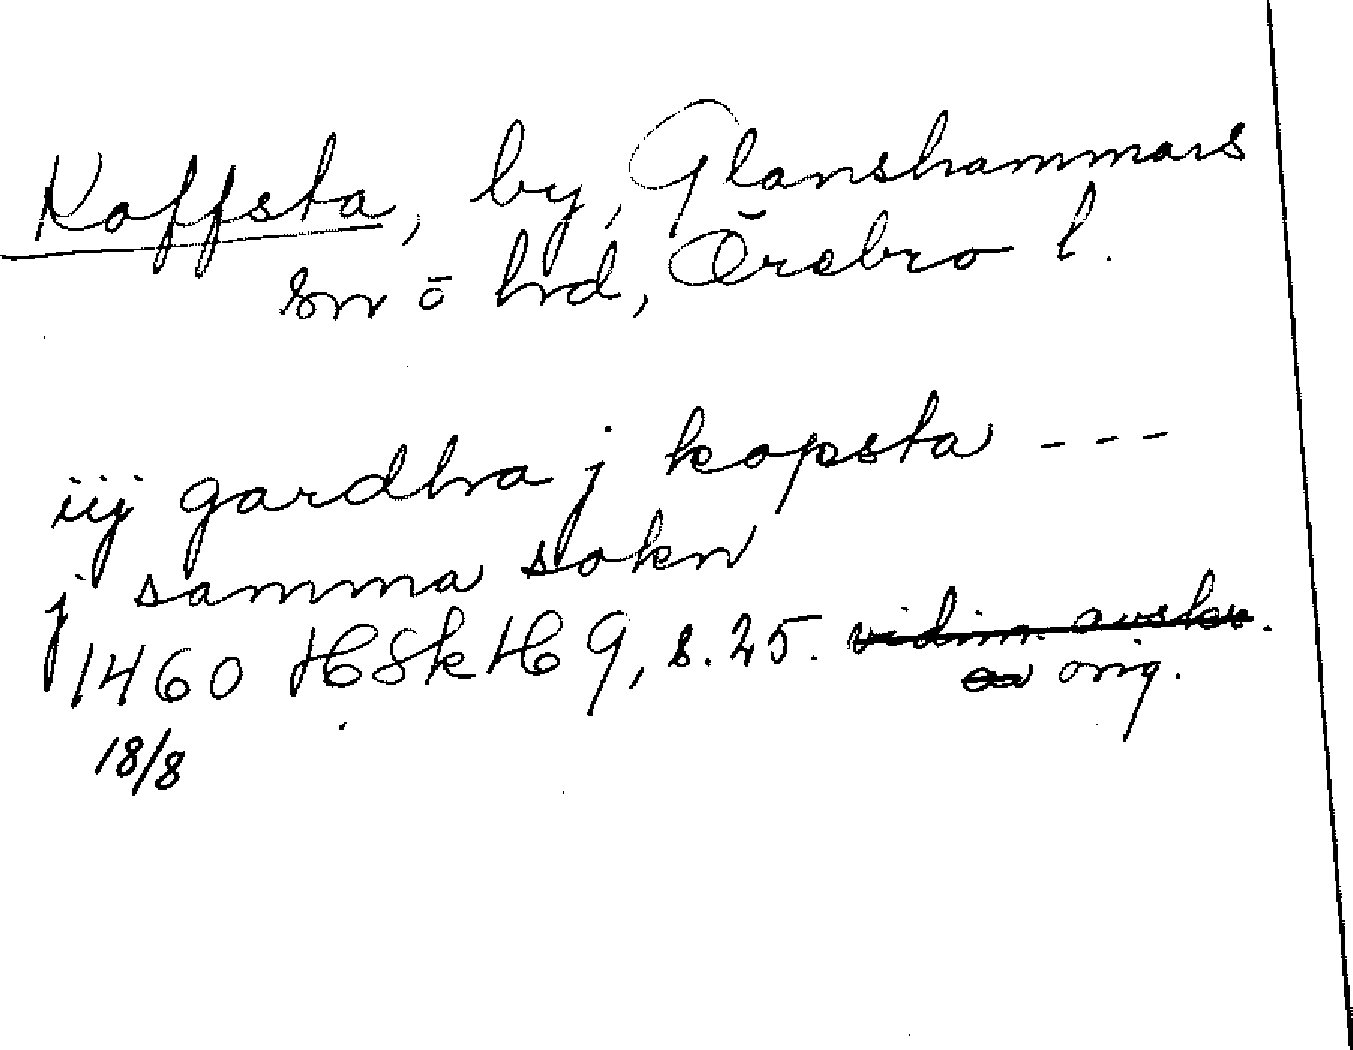 Koffsta, by, Glanshammars
sn o hrd, Örebro l.
iij gardha j kopsta ---
j samma sokn
1460 HSkH 9, s. 25. vidim. avskr.
av orig.
18/8